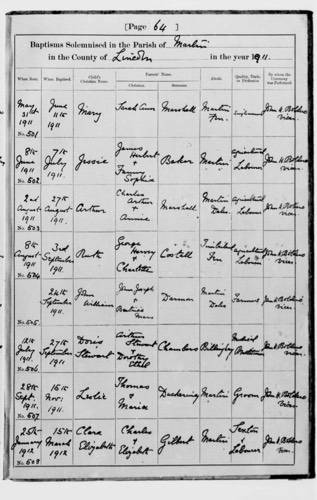 [Page 64]
Baptisms Solemnised in the Parish of Martin
in the County of Lincoln in the year 1911.
When Born. When Baptized. Child's Christian Name. Parents' Name. Christian Surname Abode. Quality, Trade, or Profession By whom the Ceremony was Performed.
May 31st 1911 June 11th 1911 Mary Sarah Ann Marshall Martin Fen
No. 501.
8th June 1911 7th July 1911. Jessie James Herbert + Fanny Sophia Baker Martin Agricultural Labourer
No. 502.
2nd August 1911 27th August 1911. Arthur Charles Arthur + Annie Marshall Martin Dales Agricultural Labourer
No. 503
8th August 1911 3rd September 1911. Ruth George Harvey + Charlotte Costall Timberland Fen Agricultural Labourer
No. 504
24th September 1911 John William John Joseph + Beatrice Mary Martin Dales Farmer
No. 505.
12th July 1911 27th September 1911 Doris Stewart Arthur Stewart + Dorothy Chambers Billinghay Medical
No. 506.
28th Sept. 1911 16th Nov: 1911. Leslie Thomas + Maria Duckering Martin Groom
No. 507
25th January 1912 15th March 1912 Clara Elizabeth Charles + Elizabeth Gilbert Martin Sexton + Labourer
No. 508